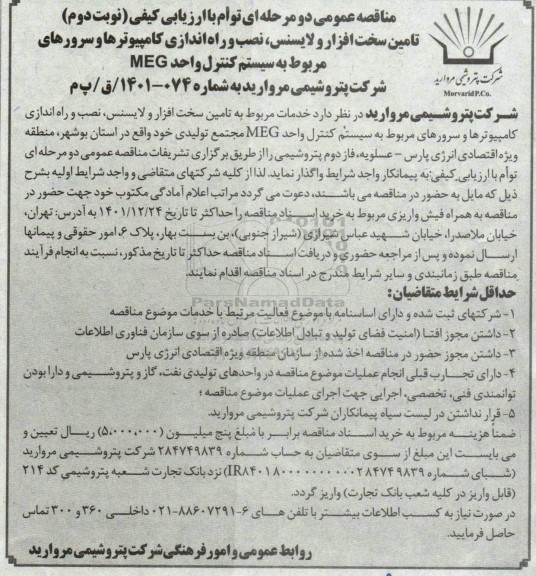 مناقصه عمومی دو مرحله ای توأم با ارزیابی کیفی (نوبت دوم)
تامین سخت افزار و لایسنس، نصب و راه اندازی کامپیوترها و سرورهای
مربوط به سیستم کنترل واحد MEG
شرکت پتروشیمی مروارید به شماره ۰۷۴-۱۴۰۱/ق/پ م
شرکت پتروشیمی مروارید
Morvarid P.Co.
شرکت پتروشیمی مروارید در نظر دارد خدمات مربوط به تامین سخت افزار و لایسنس، نصب و راه اندازی
کامپیوترها و سرورهای مربوط به سیستم کنترل واحد MEG مجتمع تولیدی خود واقع در استان بوشهر، منطقه
ویژه اقتصادی انرژی پارس - عسلویه، فاز دوم پتروشیمی را از طریق برگزاری تشریفات مناقصه عمومی دو مرحله ای
توأم با ارزیابی کیفی؛ به پیمانکار واجد شرایط واگذار نماید. لذا از کلیه شرکتهای متقاضی و واجد شرایط اولیه بشرح
ذیل که مایل به حضور در مناقصه می باشند، دعوت می گردد مراتب اعلام آمادگی مکتوب خود جهت حضور در
مناقصه به همراه فیش واریزی مربوط به خرید اسناد مناقصه را حداکثر تا تاریخ ۱۴۰۱/۱۲/۲۴ به آدرس: تهران،
خیابان ملاصدرا، خیابان شهید عباس شیرازی (شیراز جنوبی)، بن بست بهار، پلاک ۶، امور حقوقی و پیمانها
ارسال نموده و پس از مراجعه حضوری و دریافت اسناد مناقصه حداکثر تا تاریخ مذکور، نسبت به انجام فرآیند
مناقصه طبق زمانبندی و سایر شرایط مندرج در اسناد مناقصه اقدام نمایند.
ParsNamadData
حداقل شرایط متقاضیان:
۱- شرکتهای ثبت شده و دارای اساسنامه با موضوع فعالیت مرتبط با خدمات موضوع مناقصه
۲- داشتن مجوز افتا (امنیت فضای تولید و تبادل اطلاعات) صادره از سوی سازمان فناوری اطلاعات
۳- داشتن مجوز حضور در مناقصه اخذ شده از سازمان منطقه ویژه اقتصادی انرژی پارس
۴- دارای تجارب قبلی انجام عملیات موضوع مناقصه در واحدهای تولیدی نفت، گاز و پتروشیمی و دارا بودن
توانمندی فنی، تخصصی، اجرایی جهت اجرای عملیات موضوع مناقصه؛
۵- قرار نداشتن در لیست سیاه پیمانکاران شرکت پتروشیمی مروارید.
ضمناً هزینه مربوط به خرید اسناد مناقصه برابر با مبلغ پنج میلیون (۵,۰۰۰,۰۰۰) ریال تعیین و
می بایست این مبلغ از سوی متقاضیان به حساب شماره ۲۸۴۷۴۹۸۳۹ شرکت پتروشیمی مروارید
(شبای شماره IR۸۴۰۱۸۰۰۰۰۰۰۰۰۰۰۲۸۴۷۴۹۸۳۹) نزد بانک تجارت شعبه پتروشیمی کد ۲۱۴
(قابل واریز در کلیه شعب بانک تجارت) واریز گردد.
در صورت نیاز به کسب اطلاعات بیشتر با تلفن های ۶-۸۸۶۰۷۲۹۱-۰۲۱ داخلی ۳۶۰ و ۳۰۰ تماس
حاصل فرمایید.
روابط عمومی و امور فرهنگی شرکت پتروشیمی مروارید